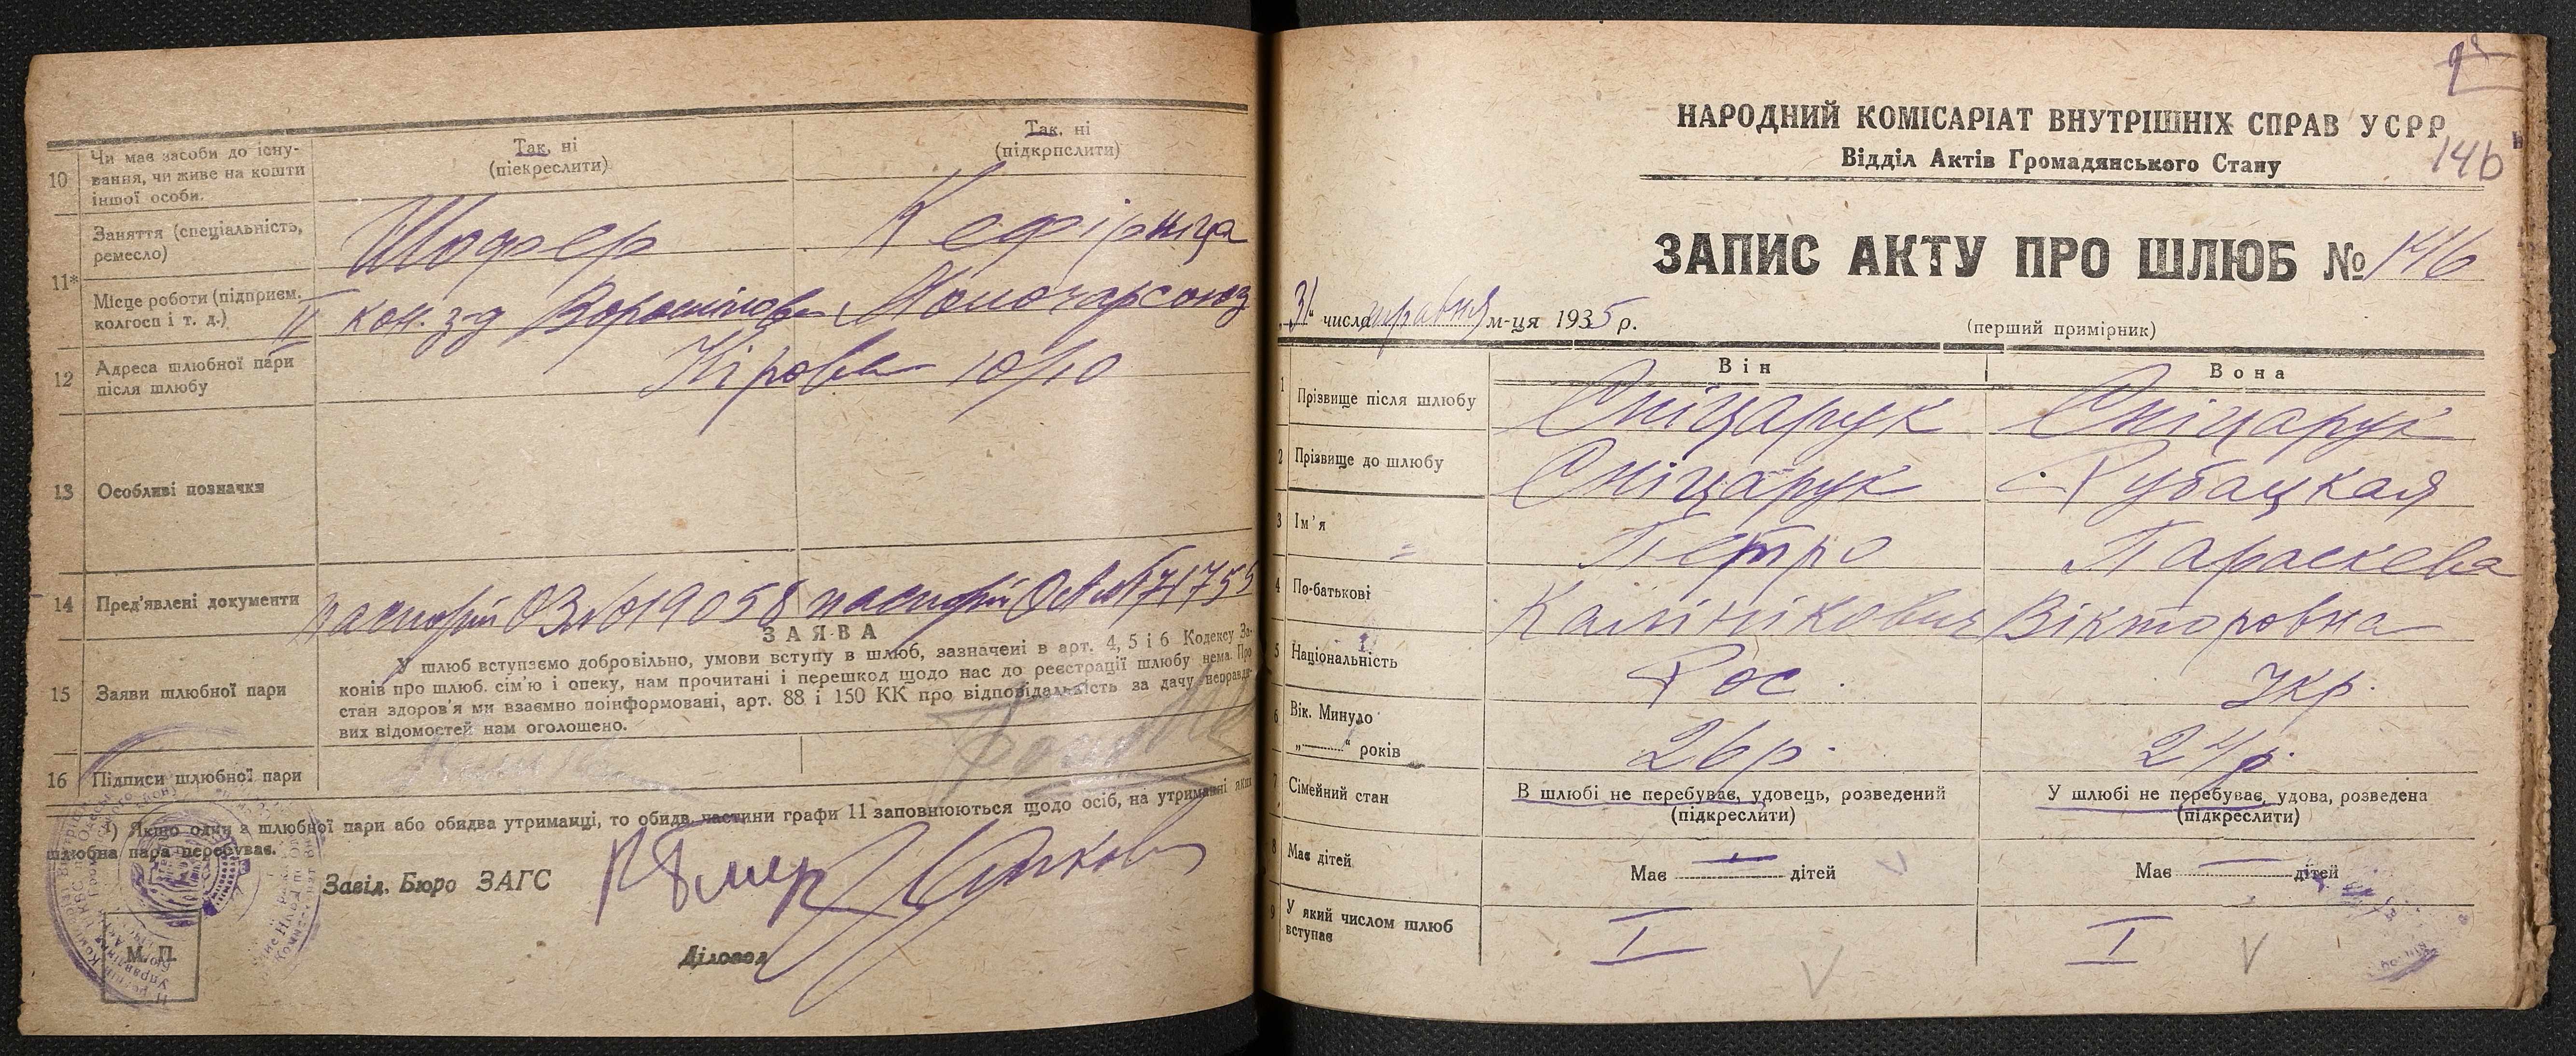 10 Чи має засоби до існу-
вання, чи живе на кошти
іншої особи.
Так, ні
(піекреслити)
Так, ні
(підкрпслити)
11* Заняття (спеціальність,
ремесло)
Шофер
Кефірніца
Місце роботи (підприєм.
колгосп і т. д.)
II кон. з-д Ворошілова
Молочарсоюз
12 Адреса шлюбної пари
після шлюбу
Кірова 10/10
13 Особливі позначки
14 Пред'явлені документи
паспорт ОЗ № 019058
паспорт
15 Заяви шлюбної пари
ЗАЯВА
У шлюб вступаємо добровільно, умови вступу в шлюб, зазначені в арт. 4, 5 і 6 Кодексу За-
конів про шлюб. сім'ю і опеку, нам прочитані і перешкод щодо нас до реєстрації шлюбу нема. Про
стан здоров'я ми взаємно поінформовані, арт. 88 і 150 КК про відповідальність за дачу неправди-
вих відомостей нам оголошено.
16 Підписи шлюбної пари
¹) Якщо один з шлюбної пари або обидва утриманці, то обидв. частини графи 11 заповнюються щодо осіб, на утриманні яких
шлюбна пара перебуває.
Завід. Бюро ЗАГС
Діловод
М. П.
НАРОДНИЙ КОМІСАРІАТ ВНУТРІШНІХ СПРАВ УСРР
Відділ Актів Громадянського Стану
146
ЗАПИС АКТУ ПРО ШЛЮБ № 146
„31" числа травня м-ця 1935 р.
(перший примірник)
Він
Вона
1 Прізвище після шлюбу
Сніцарук
Сніцарук
2 Прізвище до шлюбу
Сніцарук
Рубацкая
3 Ім'я
Петро
Параскева
4 По-батькові
Калінікович
Вікторовна
5 Національність
Рос.
Укр.
6 Вік. Минуло
„ " років
26 р.
24 р.
7 Сімейний стан
В шлюбі не перебуває, удовець, розведений
(підкреслити)
У шлюбі не перебуває, удова, розведена
(підкреслити)
8 Має дітей
Має — дітей
Має — дітей
9 У який числом шлюб
вступає
I
I